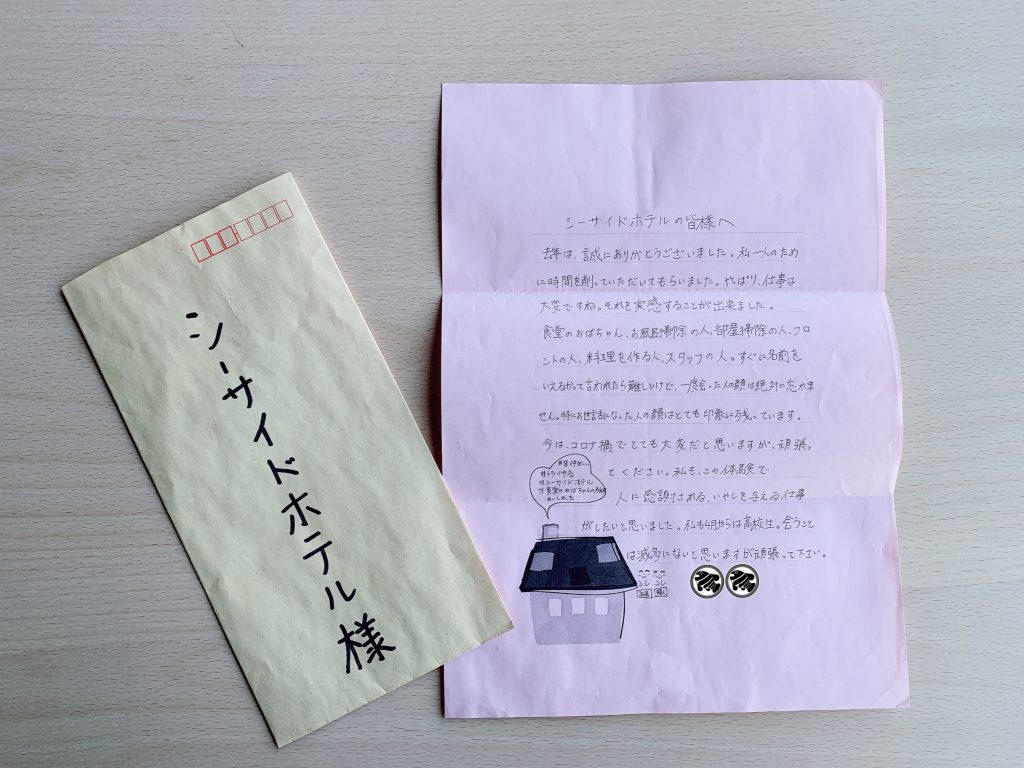 シーサイドホテル様
シーサイドホテルの皆様へ
去年は、誠にありがとうございました。私一人のため
に時間を削っていただいてもらいました。やっぱり、仕事は
大変ですね。それを実感することが出来ました。
食堂のおばちゃん、お風呂掃除の人、部屋掃除の人、フロ
ントの人、料理を作る人、スタッフの人。すぐに名前を
いえるかって言われたら難しいけど、一度会った人の顔は絶対に忘れま
せん。特にお世話になった人の顔はとても印象に残っています。
今は、コロナ禍でとても大変だと思いますが、頑張っ
てください。私も、この体験で
人に感謝される、いやしを与える仕事
がしたいと思いました。私も4月からは高校生。会うこと
は滅多にないと思いますが頑張って下さい。
#トライやる
#シーサイドホテル
#食堂のおばちゃんの
おいしかった